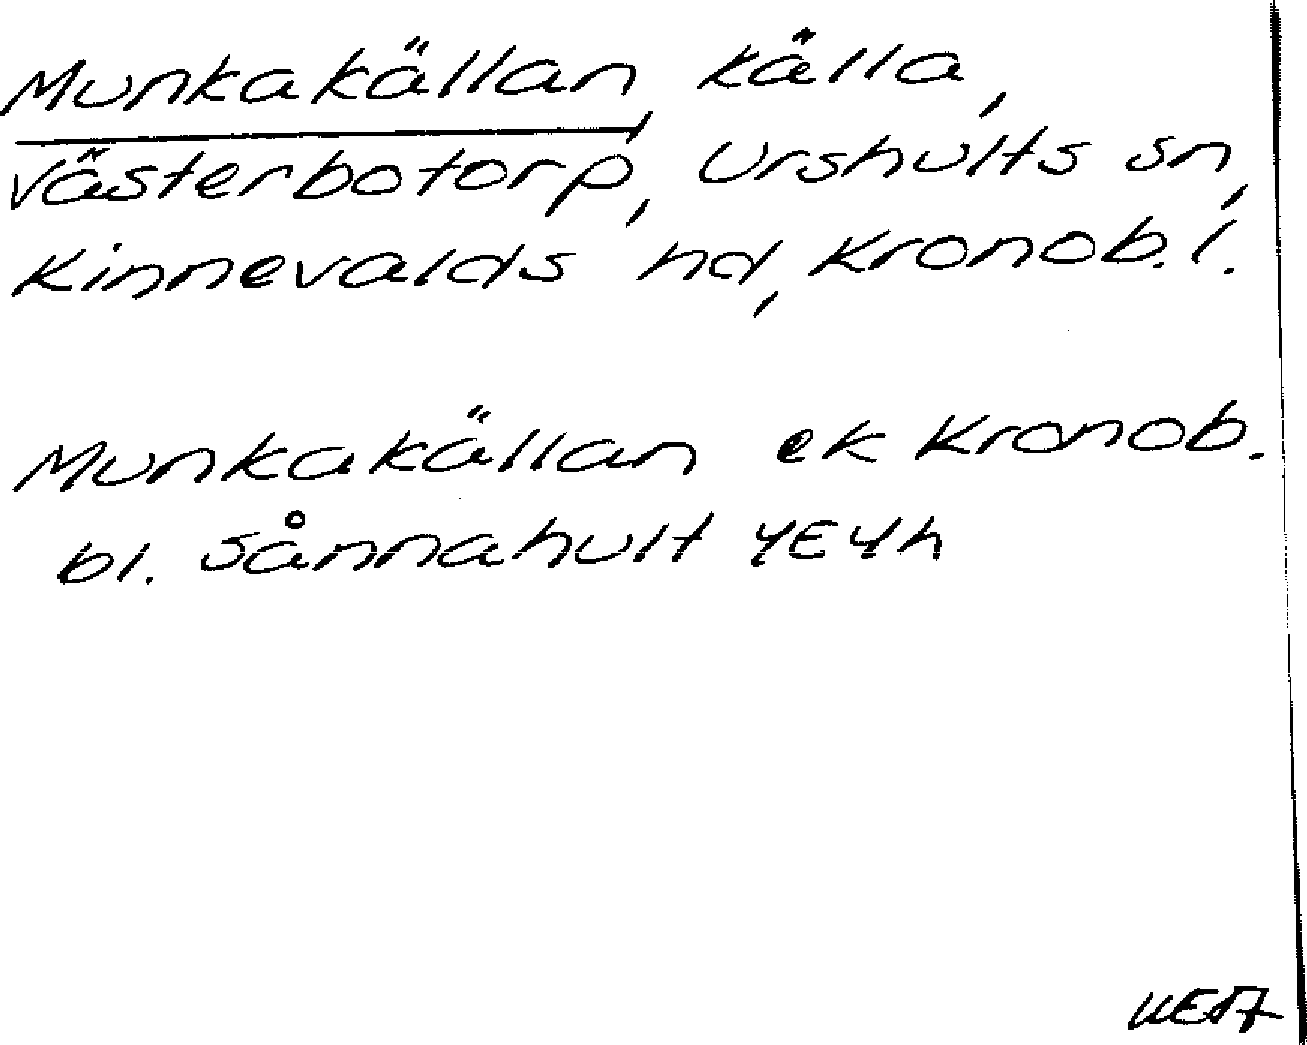 Munkakällan, källa,
Västerbotorp, Urshults sn,
Kinnevalds hd, Kronob. l.
Munkakällan ek Kronob.
bl. Sånnahult 4E4h